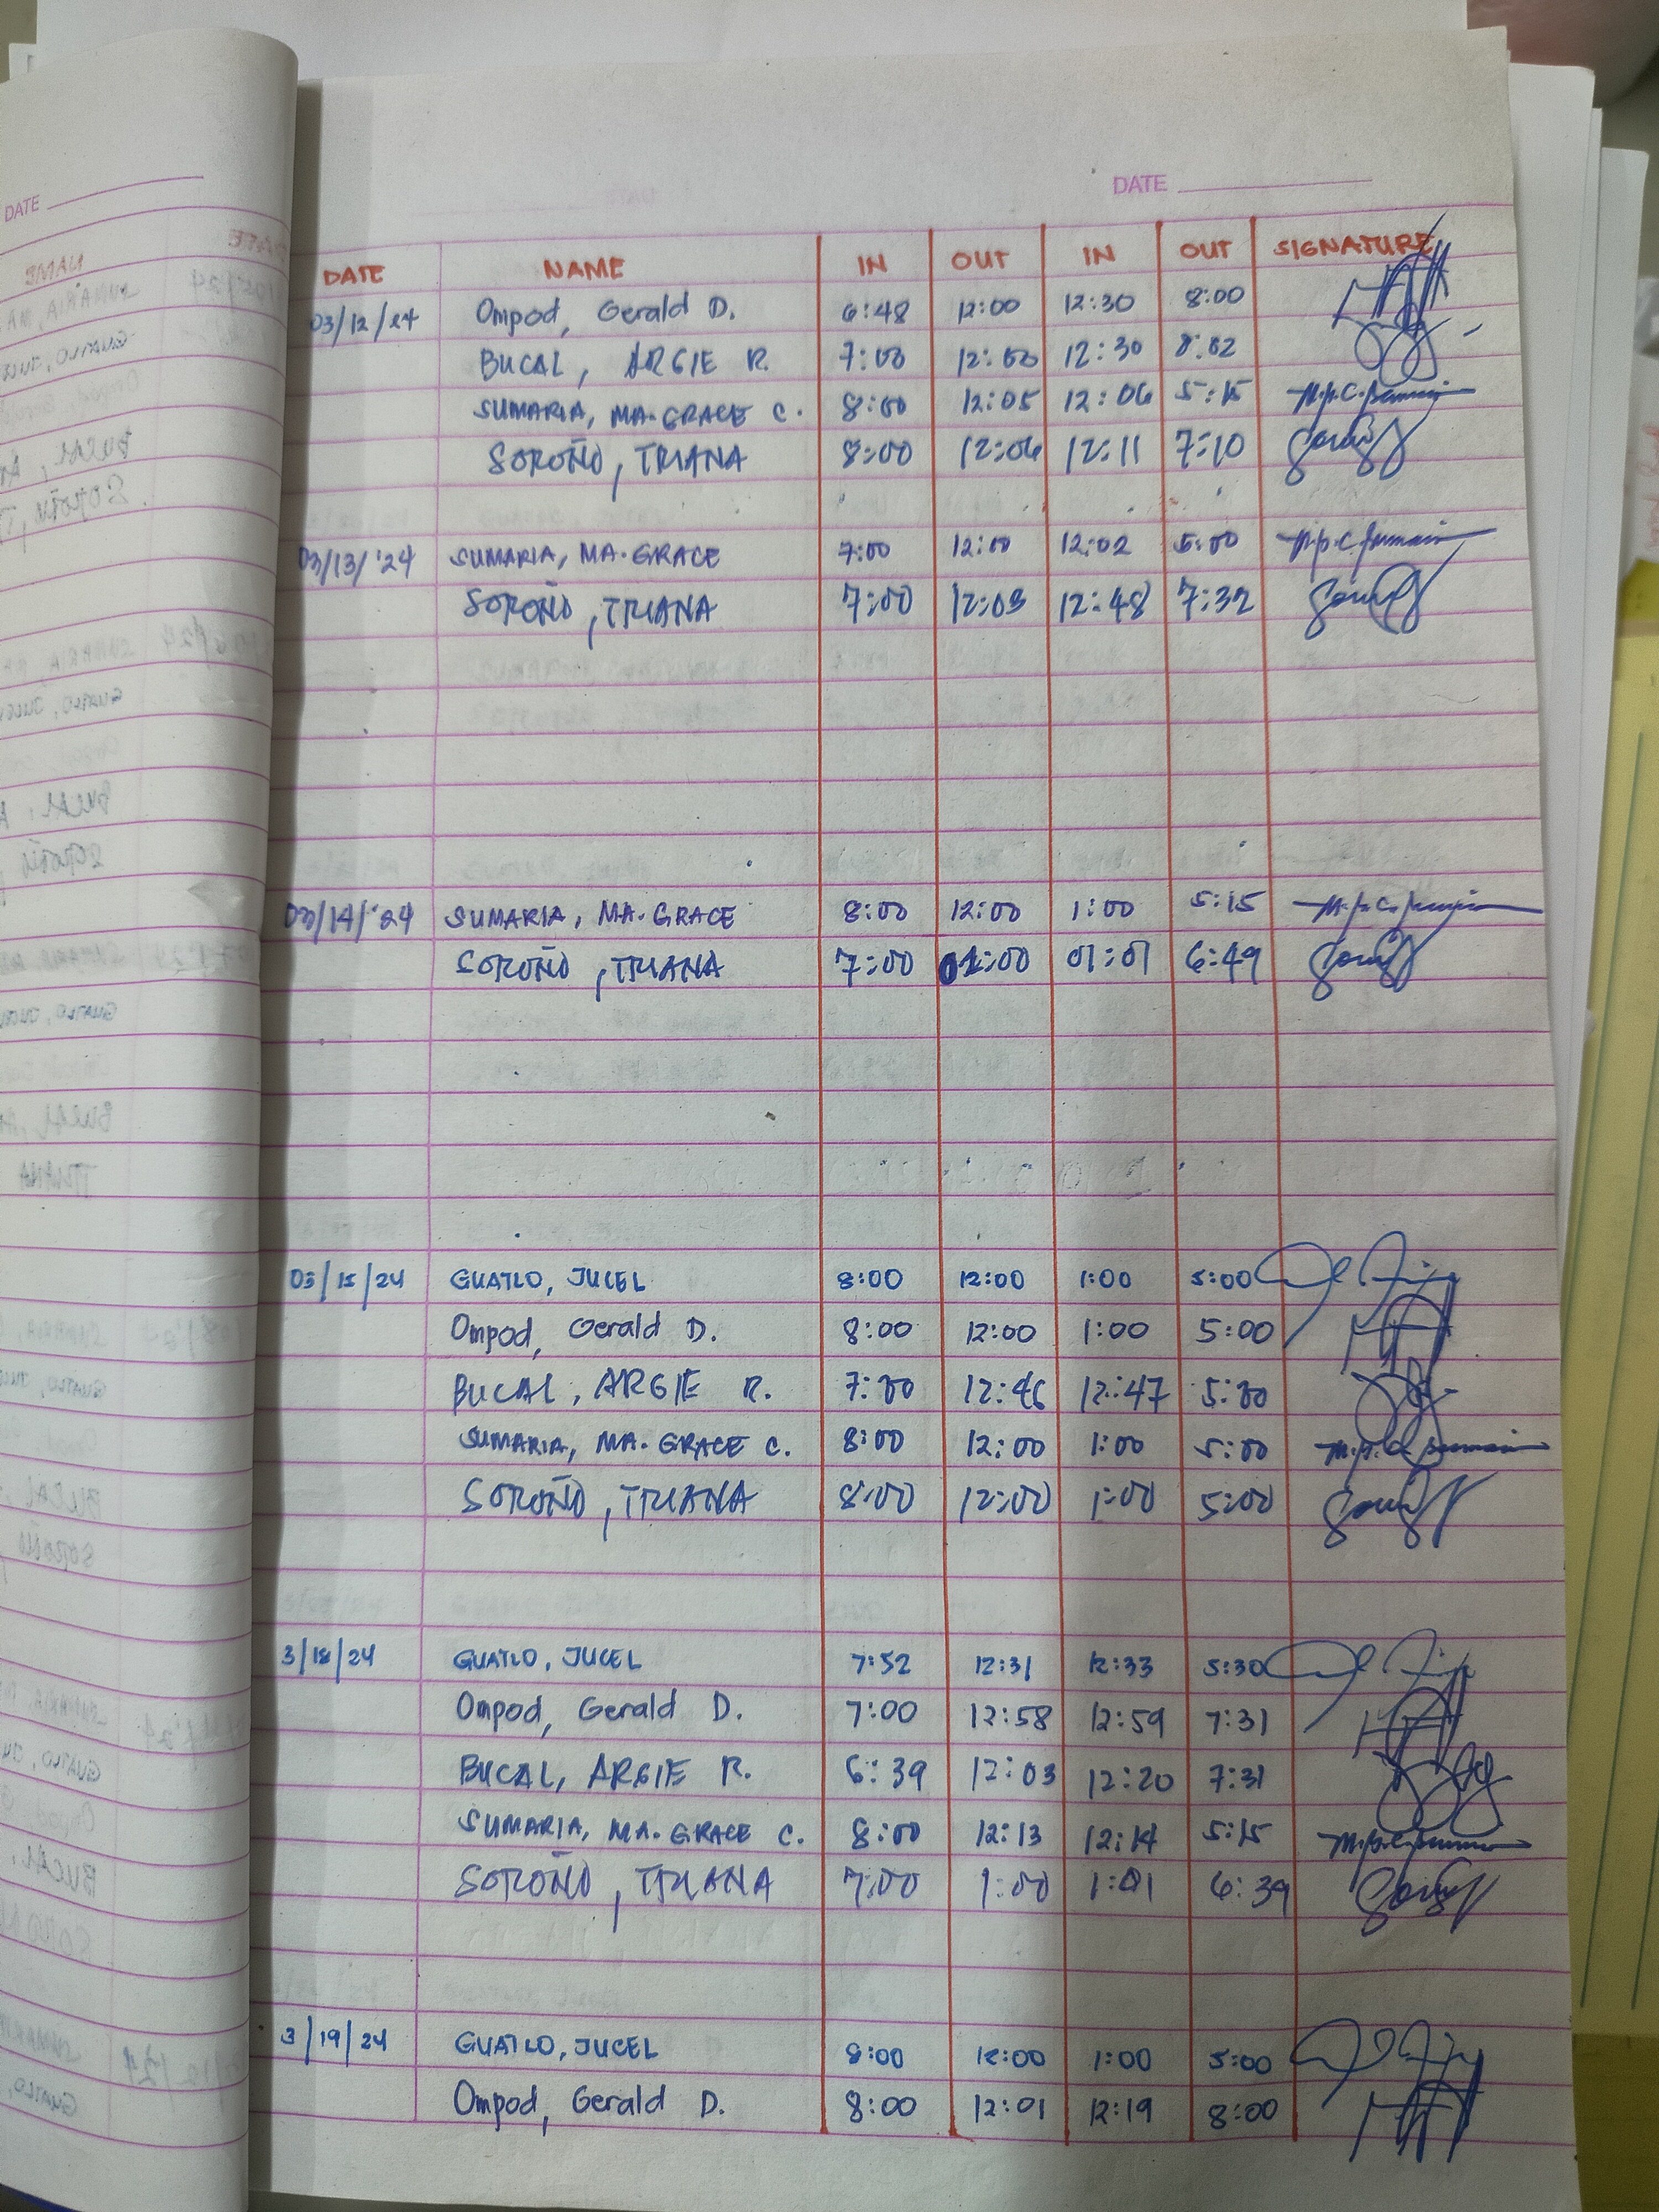 DATE
DATE
DATE NAME IN OUT IN OUT SIGNATURE
03/12/24 Ompod, Gerald D. 6:48 12:00 12:30 8:00
BUCAL, ARGIE R. 7:00 12:00 12:30 8:02
SUMARIA, MA. GRACE C. 8:00 12:05 12:06 5:15
SOROÑO, TRIANA 8:00 12:06 12:11 7:10
03/13/'24 SUMARIA, MA. GRACE 7:00 12:00 12:02 5:00
SOROÑO, TRIANA 7:00 12:03 12:48 7:32
03/14/'24 SUMARIA, MA. GRACE 8:00 12:00 1:00 5:15
SOROÑO, TRIANA 7:00 01:01 6:49
03/15/24 GUATLO, JUCEL 8:00 12:00 1:00 5:00
Ompod, Gerald D. 8:00 12:00 1:00 5:00
BUCAL, ARGIE R. 7:00 12:46 12:47 5:00
SUMARIA, MA. GRACE C. 8:00 12:00 1:00 5:00
SOROÑO, TRIANA 8:00 12:00 1:00 5:00
3/18/24 GUATLO, JUCEL 7:52 12:31 12:33 5:30
Ompod, Gerald D. 7:00 12:58 12:59 7:31
BUCAL, ARGIE R. 6:39 12:03 12:20 7:31
SUMARIA, MA. GRACE C. 8:00 12:13 12:14 5:15
SOROÑO, TRIANA 7:00 1:00 1:01 6:39
3/19/24 GUATLO, JUCEL 8:00 12:00 1:00 5:00
Ompod, Gerald D. 8:00 12:01 12:19 8:00